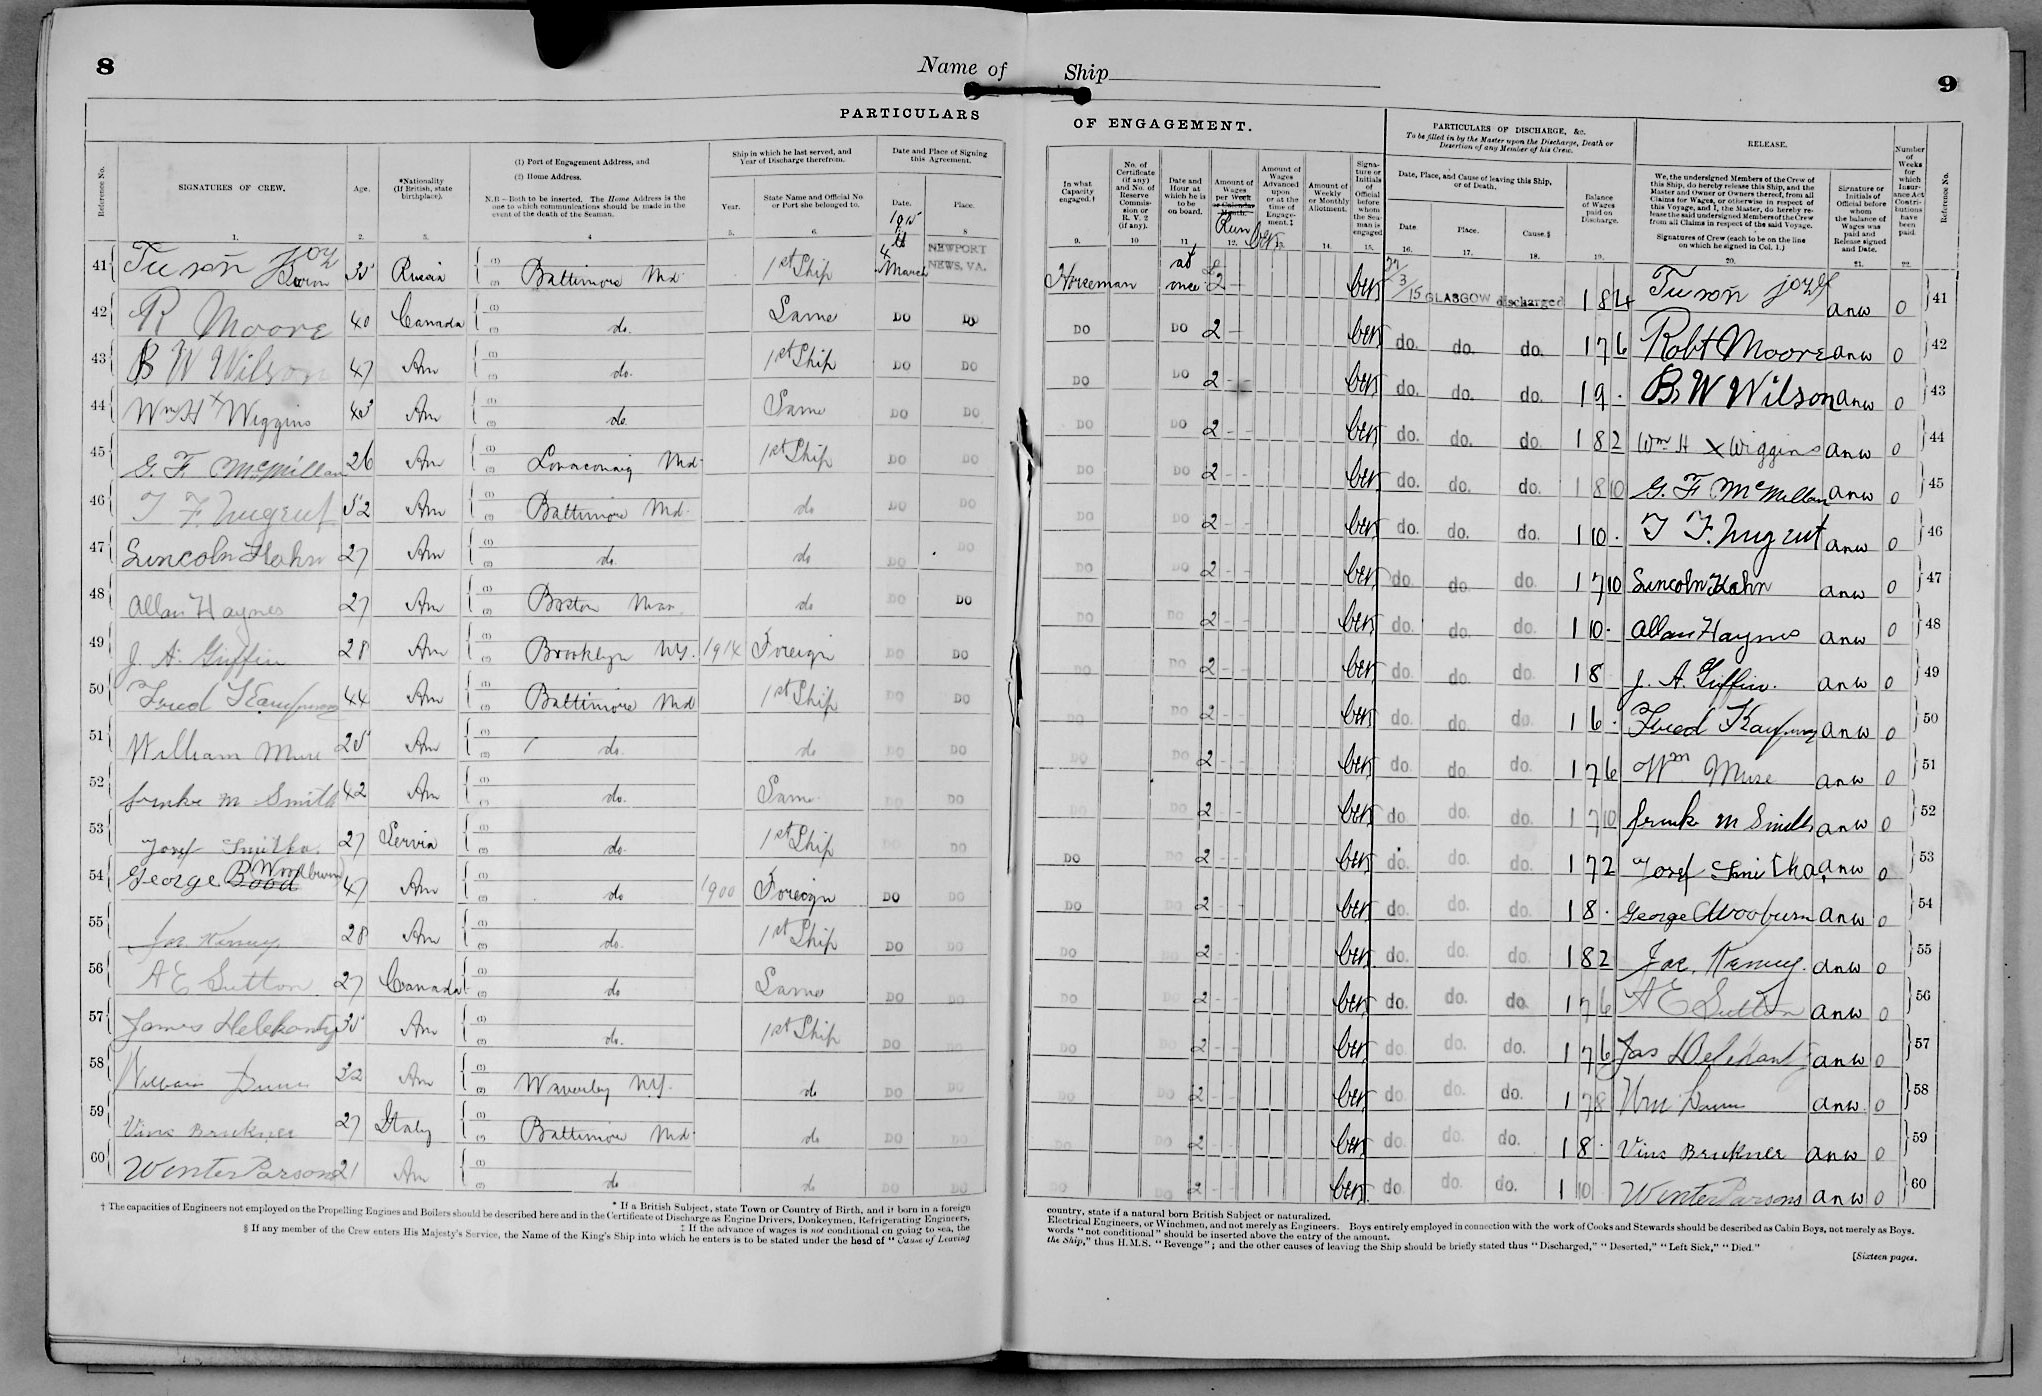 8
Name of Ship
9
PARTICULARS OF ENGAGEMENT.
PARTICULARS OF DISCHARGE, &c.
To be filled in by the Master upon the Discharge, Death or Desertion of any Member of his Crew.
RELEASE.
Reference No.
SIGNATURES OF CREW.
Age.
*Nationality (If British, state birthplace).
(1) Port of Engagement Address, and
(2) Home Address.
N.B.—Both to be inserted. The Home Address is the one to which communications should be made in the event of the death of the Seaman.
Ship in which he last served, and Year of Discharge therefrom.
Year.
State Name and Official No. or Port she belonged to.
Date and Place of Signing this Agreement.
Date.
Place.
In what Capacity engaged.†
No. of Certificate (if any) and No. of Reserve Commission or R. V. 2 (if any).
Date and Hour at which he is to be on board.
Amount of Wages per Week or Calendar Month.
Run
Amount of Wages Advanced upon or at the time of Engagement.‡
Amount of Weekly or Monthly Allotment.
Signature or Initials of Official before whom the Seaman is engaged
Date, Place, and Cause of leaving this Ship, or of Death.
Date.
Place.
Cause.§
Balance of Wages paid on Discharge.
We, the undersigned Members of the Crew of this Ship, do hereby release this Ship, and the Master and Owner or Owners thereof, from all Claims for Wages, or otherwise in respect of this Voyage, and I, the Master, do hereby release the said undersigned Members of the Crew from all Claims in respect of the said Voyage.
Signatures of Crew (each to be on the line on which he signed in Col. 1.)
Signature or Initials of Official before whom the balance of Wages was paid and Release signed and Date.
Number of Weeks for which Insurance Act Contributions have been paid.
Reference No.
1. 2. 3. 4 5. 6. 8 9. 10 11 12. 14. 15. 16. 17. 18. 19. 20. 21. 22.
1915
41 35 Russia Baltimore Md. 1st Ship 4 March NEWPORT NEWS, VA. Horseman at once 2 27/3/15 GLASGOW discharged 1 8 4 anw 0 41
42 R Moore 40 Canada do. Same DO DO DO DO 2 do. do. do. 1 7 6 Robt Moore anw 0 42
43 B W Wilson 47 Am do. 1st Ship DO DO DO DO 2 do. do. do. 1 9 . B W Wilson anw 0 43
44 Wm H x Wiggins Am do. Same DO DO DO DO 2 do. do. do. 1 8 2 Wm H x Wiggins anw 0 44
45 G. F. McMillan 26 Am Lonaconing Md. 1st Ship DO DO DO DO 2 do. do. do. 1 8 10 G. F McMillan anw 0 45
46 T F. Nugent 52 Am Baltimore Md. do DO DO DO DO 2 do. do. do. 1 10 . T F. Nugent anw 0 46
47 Lincoln Hahn 27 Am do. do DO DO DO DO 2 do. do. do. 1 7 10 Lincoln Hahn anw 0 47
48 Allan Haynes 27 Am Boston Mass do DO DO DO DO 2 do. do. do. 1 10 . Allan Haynes anw 0 48
49 J. A. Griffin 28 Am Brooklyn N.Y. 1914 Foreign DO DO DO DO 2 do. do. do. 1 8 J. A. Griffin. anw 0 49
50 Fred 44 Am Baltimore Md 1st Ship DO DO DO DO 2 do. do. do. 1 6 . Fred anw 0 50
51 William Muse 25 Am do. do DO DO DO DO 2 do. do. do. 1 7 6 Wm Muse anw 0 51
52 M Smith 42 Am do. Same DO DO DO DO 2 do. do. do. 1 7 10 M Smith anw 0 52
53 Josef Smitka. 27 Servia do. 1st Ship DO DO 2 do. do. do. 1 7 2 Josef Smitka anw 0 53
54 George Woodburn 47 Am do 1900 Foreign DO DO DO DO 2 do. do. do. 1 8 . George Woodburn anw 0 54
55 Jas. Kenney 28 Am do. 1st Ship DO DO DO DO 2 do. do. do. 1 8 2 Jas. Kenney. anw 0 55
56 A E Sutton 27 Canada do Same DO DO DO DO 2 do. do. do. 1 7 6 A E Sutton anw 0 56
57 James Delehanty 35 Am do. 1st Ship DO DO DO DO 2 do. do. do. 1 7 6 Jas Delehanty anw 0 57
58 William 32 Am Waverley N.Y. do DO DO DO DO 2 do. do. do. 1 7 8 Wm anw 0 58
59 Vins Brukner 27 Italy Baltimore Md. do DO DO DO DO 2 do. do. do. 1 8 . Vins Brukner anw 0 59
60 Winter Parsons 21 Am do do DO DO DO DO 2 do. do. do. 1 10 Winter Parsons anw 0 60
* If a British Subject, state Town or Country of Birth, and if born in a foreign country, state if a natural born British Subject or naturalized.
† The capacities of Engineers not employed on the Propelling Engines and Boilers should be described here and in the Certificate of Discharge as Engine Drivers, Donkeymen, Refrigerating Engineers, Electrical Engineers, or Winchmen, and not merely as Engineers. Boys entirely employed in connection with the work of Cooks and Stewards should be described as Cabin Boys, not merely as Boys.
‡ If the advance of wages is not conditional on going to sea, the words "not conditional" should be inserted above the entry of the amount.
§ If any member of the Crew enters His Majesty's Service, the Name of the King's Ship into which he enters is to be stated under the head of "Cause of Leaving the Ship," thus H.M.S. "Revenge"; and the other causes of leaving the Ship should be briefly stated thus "Discharged," "Deserted," "Left Sick," "Died."
[Sixteen pages.